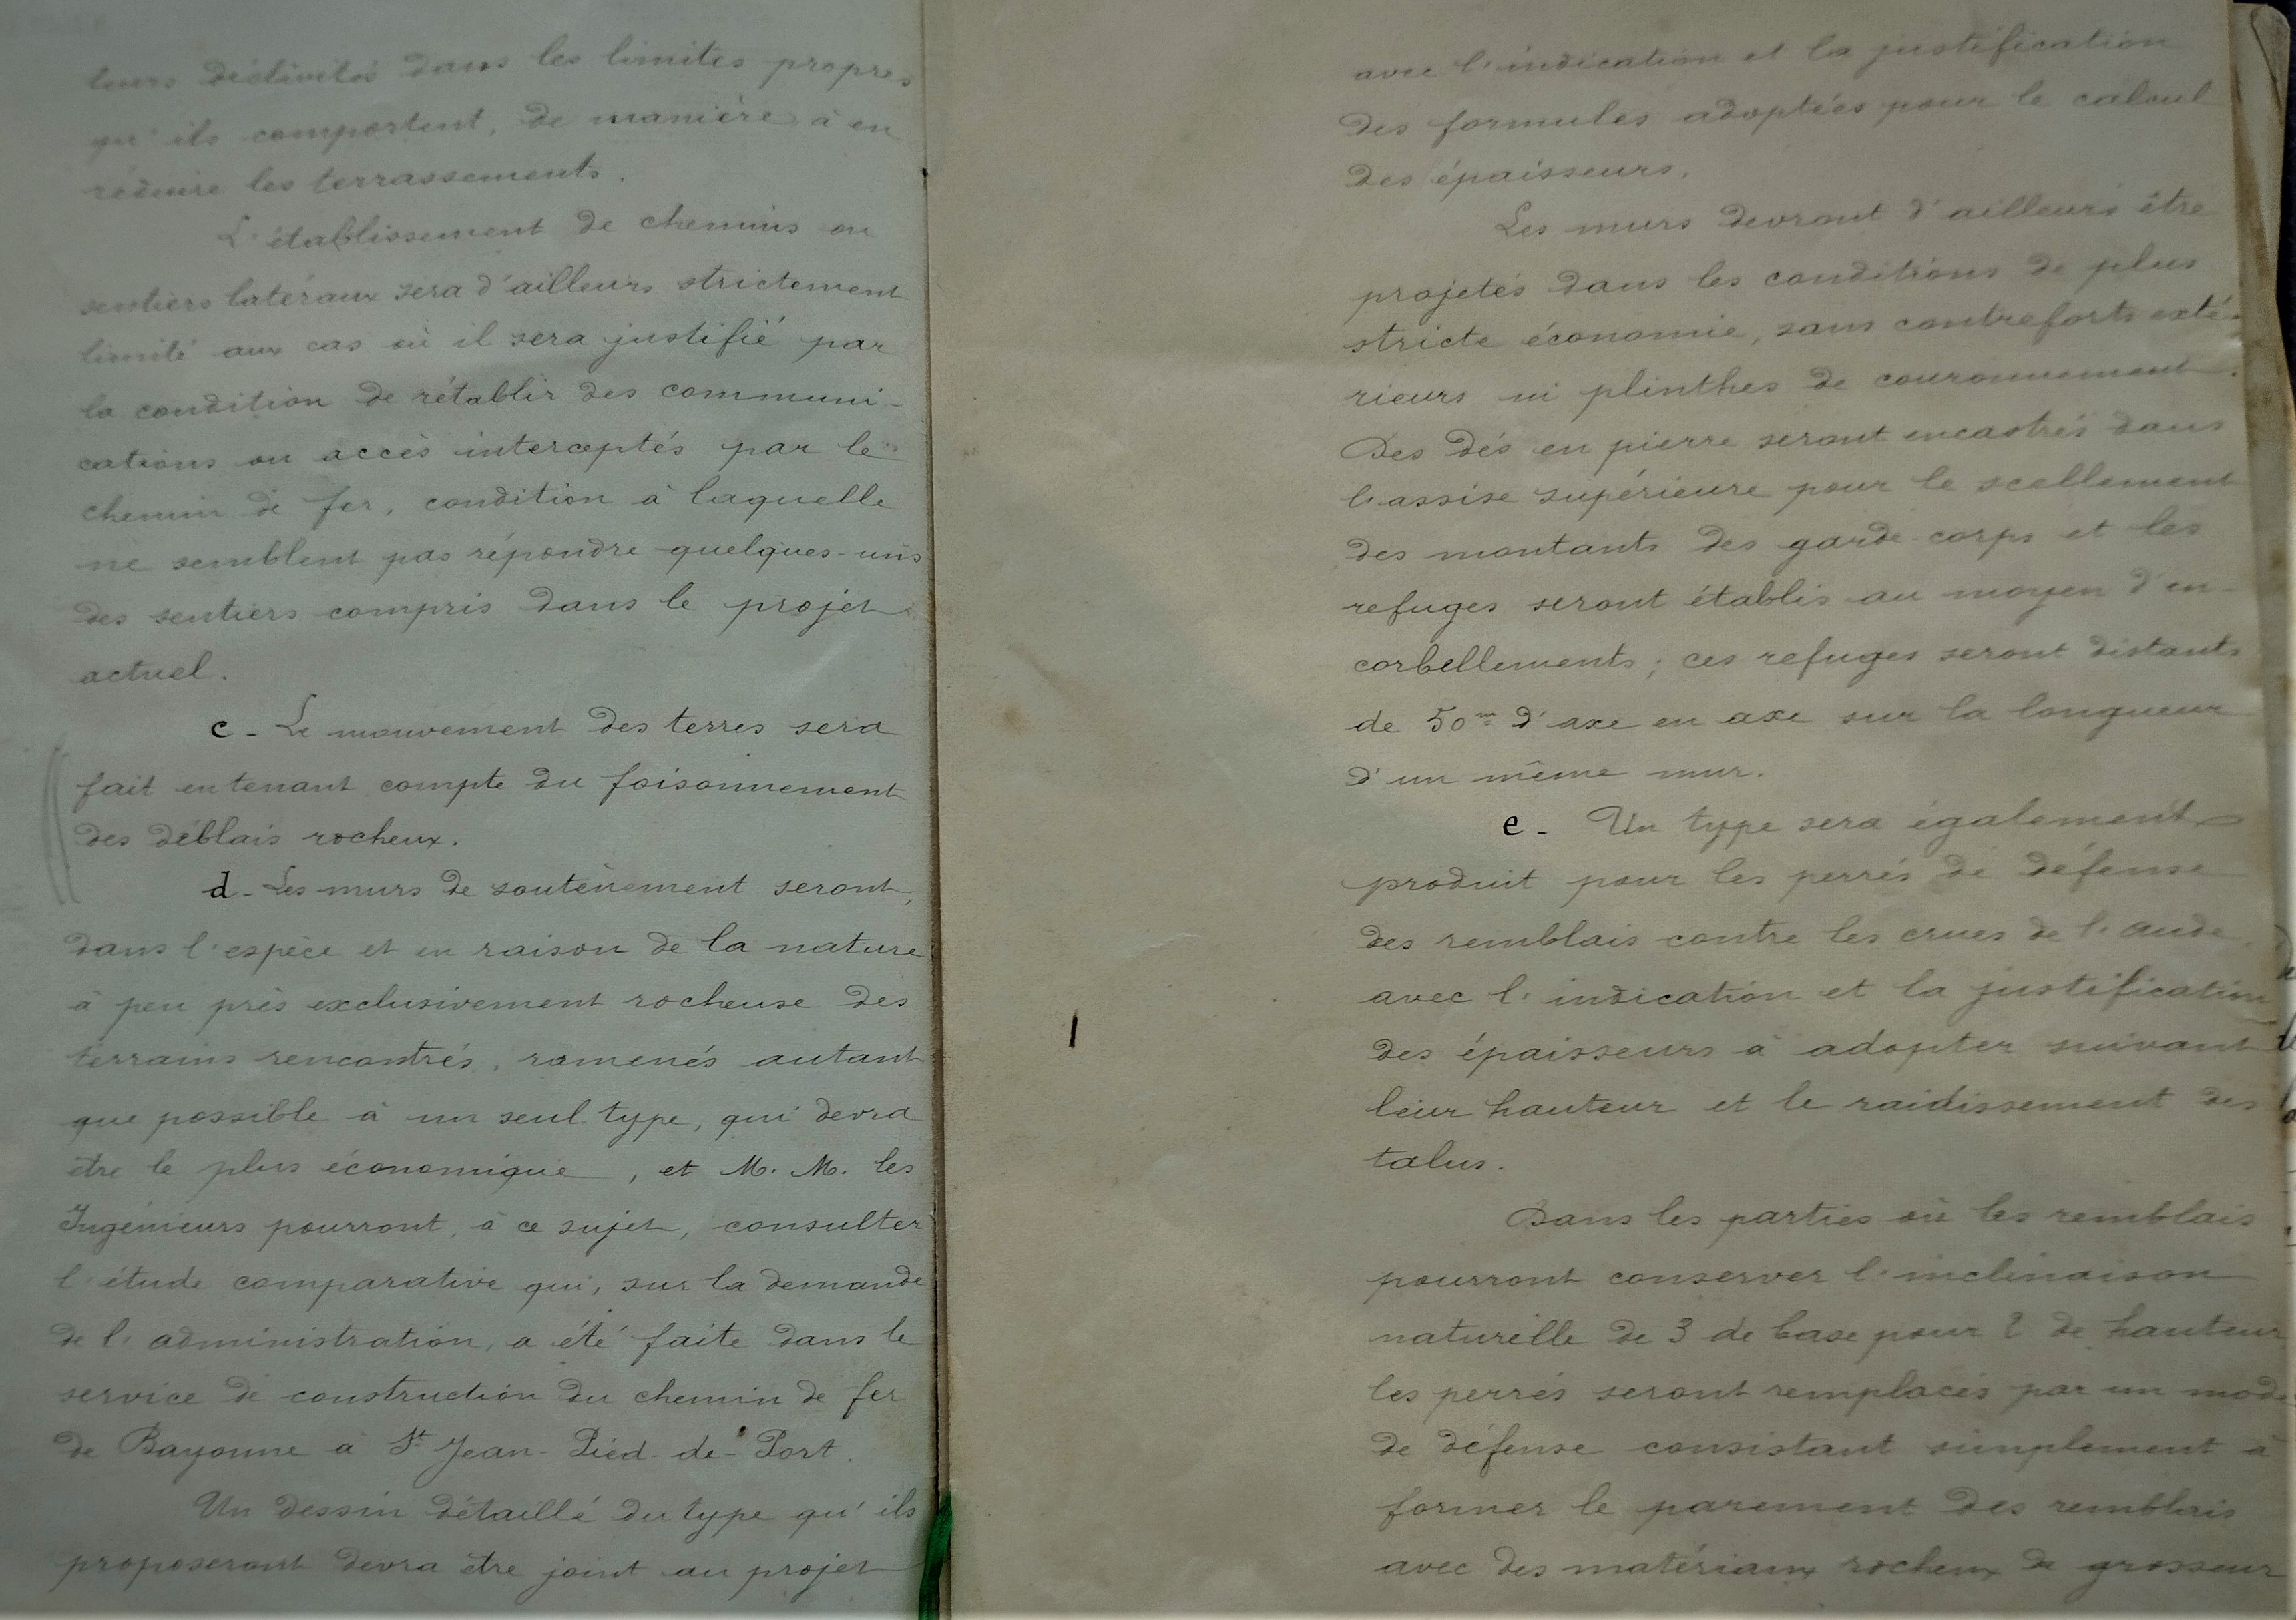 leurs déclivités dans les limites propres
qu'ils comportent, de manière à en
réduire les terrassements.
L'établissement de chemins ou
sentiers latéraux sera d'ailleurs strictement
limité aux cas où il sera justifié par
la condition de rétablir des communi-
cations ou accès interceptés par le
chemin de fer, condition à laquelle
ne semblent pas répondre quelques-uns
des sentiers compris dans le projet
actuel.
c - Le mouvement des terres sera
fait en tenant compte du foisonnement
des déblais rocheux.
d - Les murs de soutènement seront,
dans l'espèce et en raison de la nature
à peu près exclusivement rocheuse des
terrains rencontrés, ramenés autant
que possible à un seul type, qui devra
être le plus économique, et M. M. les
Ingénieurs pourront, à ce sujet, consulter
l'étude comparative qui, sur la demande
de l'administration, a été faite dans le
service de construction du chemin de fer
de Bayonne à St Jean-Pied-de-Port.
Un dessin détaillé du type qu'ils
proposeront devra être joint au projet
avec l'indication et la justification
des formules adoptées pour le calcul
des épaisseurs.
Les murs devront d'ailleurs être
projetés dans les conditions de plus
stricte économie, sans contreforts exté-
rieurs ni plinthes de couronnement.
Des dés en pierre seront encastrés dans
l'assise supérieure pour le scellement
des montants des garde-corps et les
refuges seront établis au moyen d'en-
corbellements ; ces refuges seront distants
de 50m d'axe en axe sur la longueur
d'un même mur.
e - Un type sera également
produit pour les perrés de défense
des remblais contre les crues de l'aude,
avec l'indication et la justification
des épaisseurs à adopter suivant
leur hauteur et le raidissement des
talus.
Dans les parties où les remblais
pourront conserver l'inclinaison
naturelle de 3 de base pour 2 de hauteur
les perrés seront remplacés par un mode
de défense consistant simplement à
former le parement des remblais
avec des matériaux rocheux de grosseur